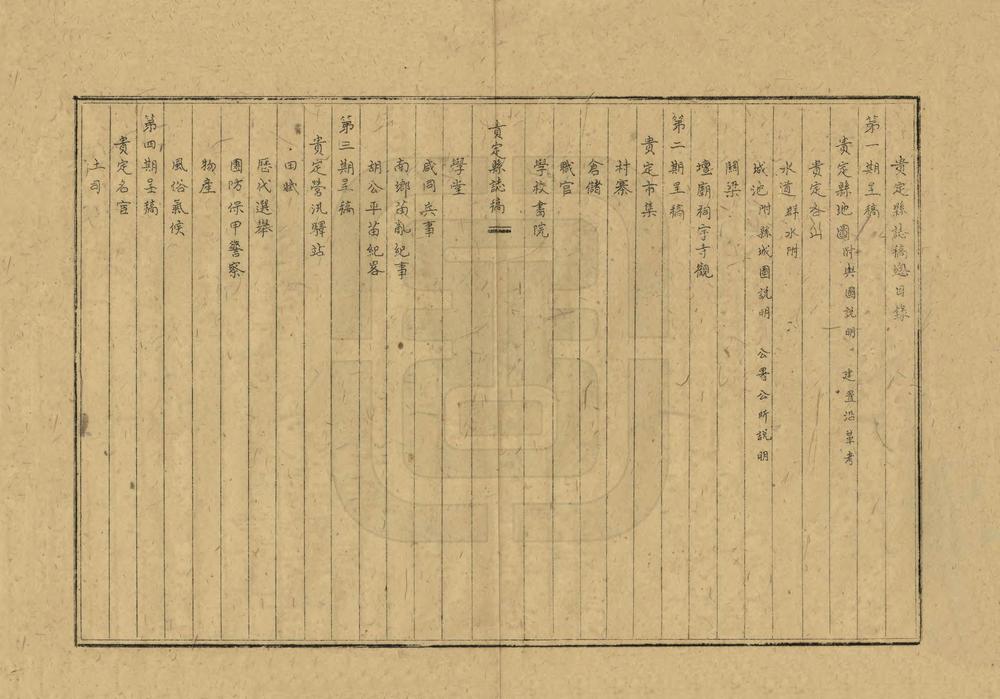 貴定縣誌稿總目錄
第一期呈稿
貴定縣地圖附輿圖說明 建置沿革考
貴定各山
水道 群水附
城池 附縣城圖說明 公署公所說明
關梁
壇廟祠宇寺觀
第二期呈稿
貴定市集
村寨
倉儲
職官
學校書院
貴定縣誌稿
學堂
咸同兵事
南鄉苗亂紀事
胡公平苗紀畧
第三期呈稿
貴定營汛驛站
田賦
歷代選舉
團防保甲警察
物產
風俗氣候
第四期呈稿
貴定名宦
土司